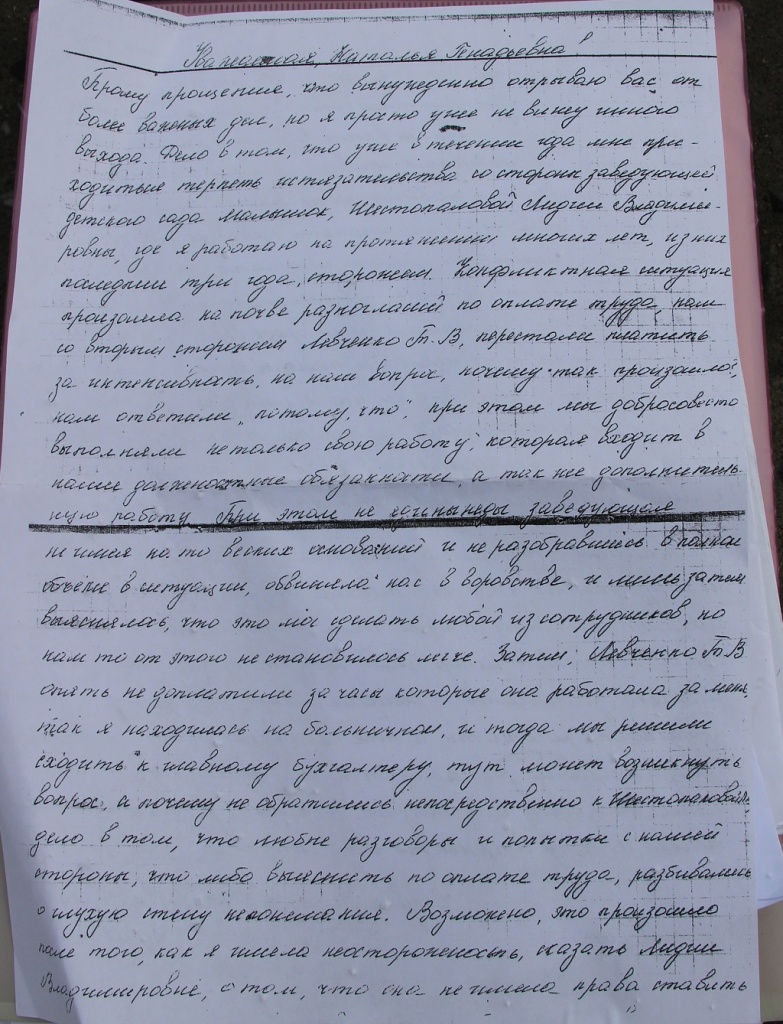 Уважаемая, Наталья Генадьевна
Прошу прощения, что вынужденно отрываю вас от
более важных дел, но я просто уже не вижу иного
выхода. Дело в том, что уже в течении года мне при-
ходиться терпеть истязательства со стороны заведующей
детского сада Малышок, Шестопаловой Лидии Владими-
ровны, где я работаю на протяжении многих лет, из них
последнии три года, сторожем. Конфликтная ситуация
произошла на почве разногласий по оплате труда, нам
со вторым сторожем Левченко Т.В, перестали платить
за интенсивность, на наш вопрос, почему так произошло,
нам ответили, "потому, что", при этом мы добросовесто
выполняли не только свою работу, которая входит в
наши должностные обязанности, а так же дополнитель-
ную работу При этом не единыжды заведующая
не имея на то веских оснований и не разобравшись в полном
в ситуации, обвиняла нас в воровстве, и лишь затем
выяснялось, что это мог сделать любой из сотрудников, но
нам то от этого не становилось легче. Затем, Левченко Т.В
опять не доплатили за часы которые она работала за меня,
так я находилась на больничном, и тогда мы решили
сходить к главному бухгалтеру, тут может возникнуть
вопрос, а почему не обратились непосредственно к Шестопаловой,
дело в том, что любые разговоры и попытки с нашей
стороны, что либо выяснить по оплате труда, разбивались
о глухую стену непонимания. Возможно, это произошло
после того, как я имела неосторожность, сказать Лидии
Владимировне, о том, что она не имела права ставить